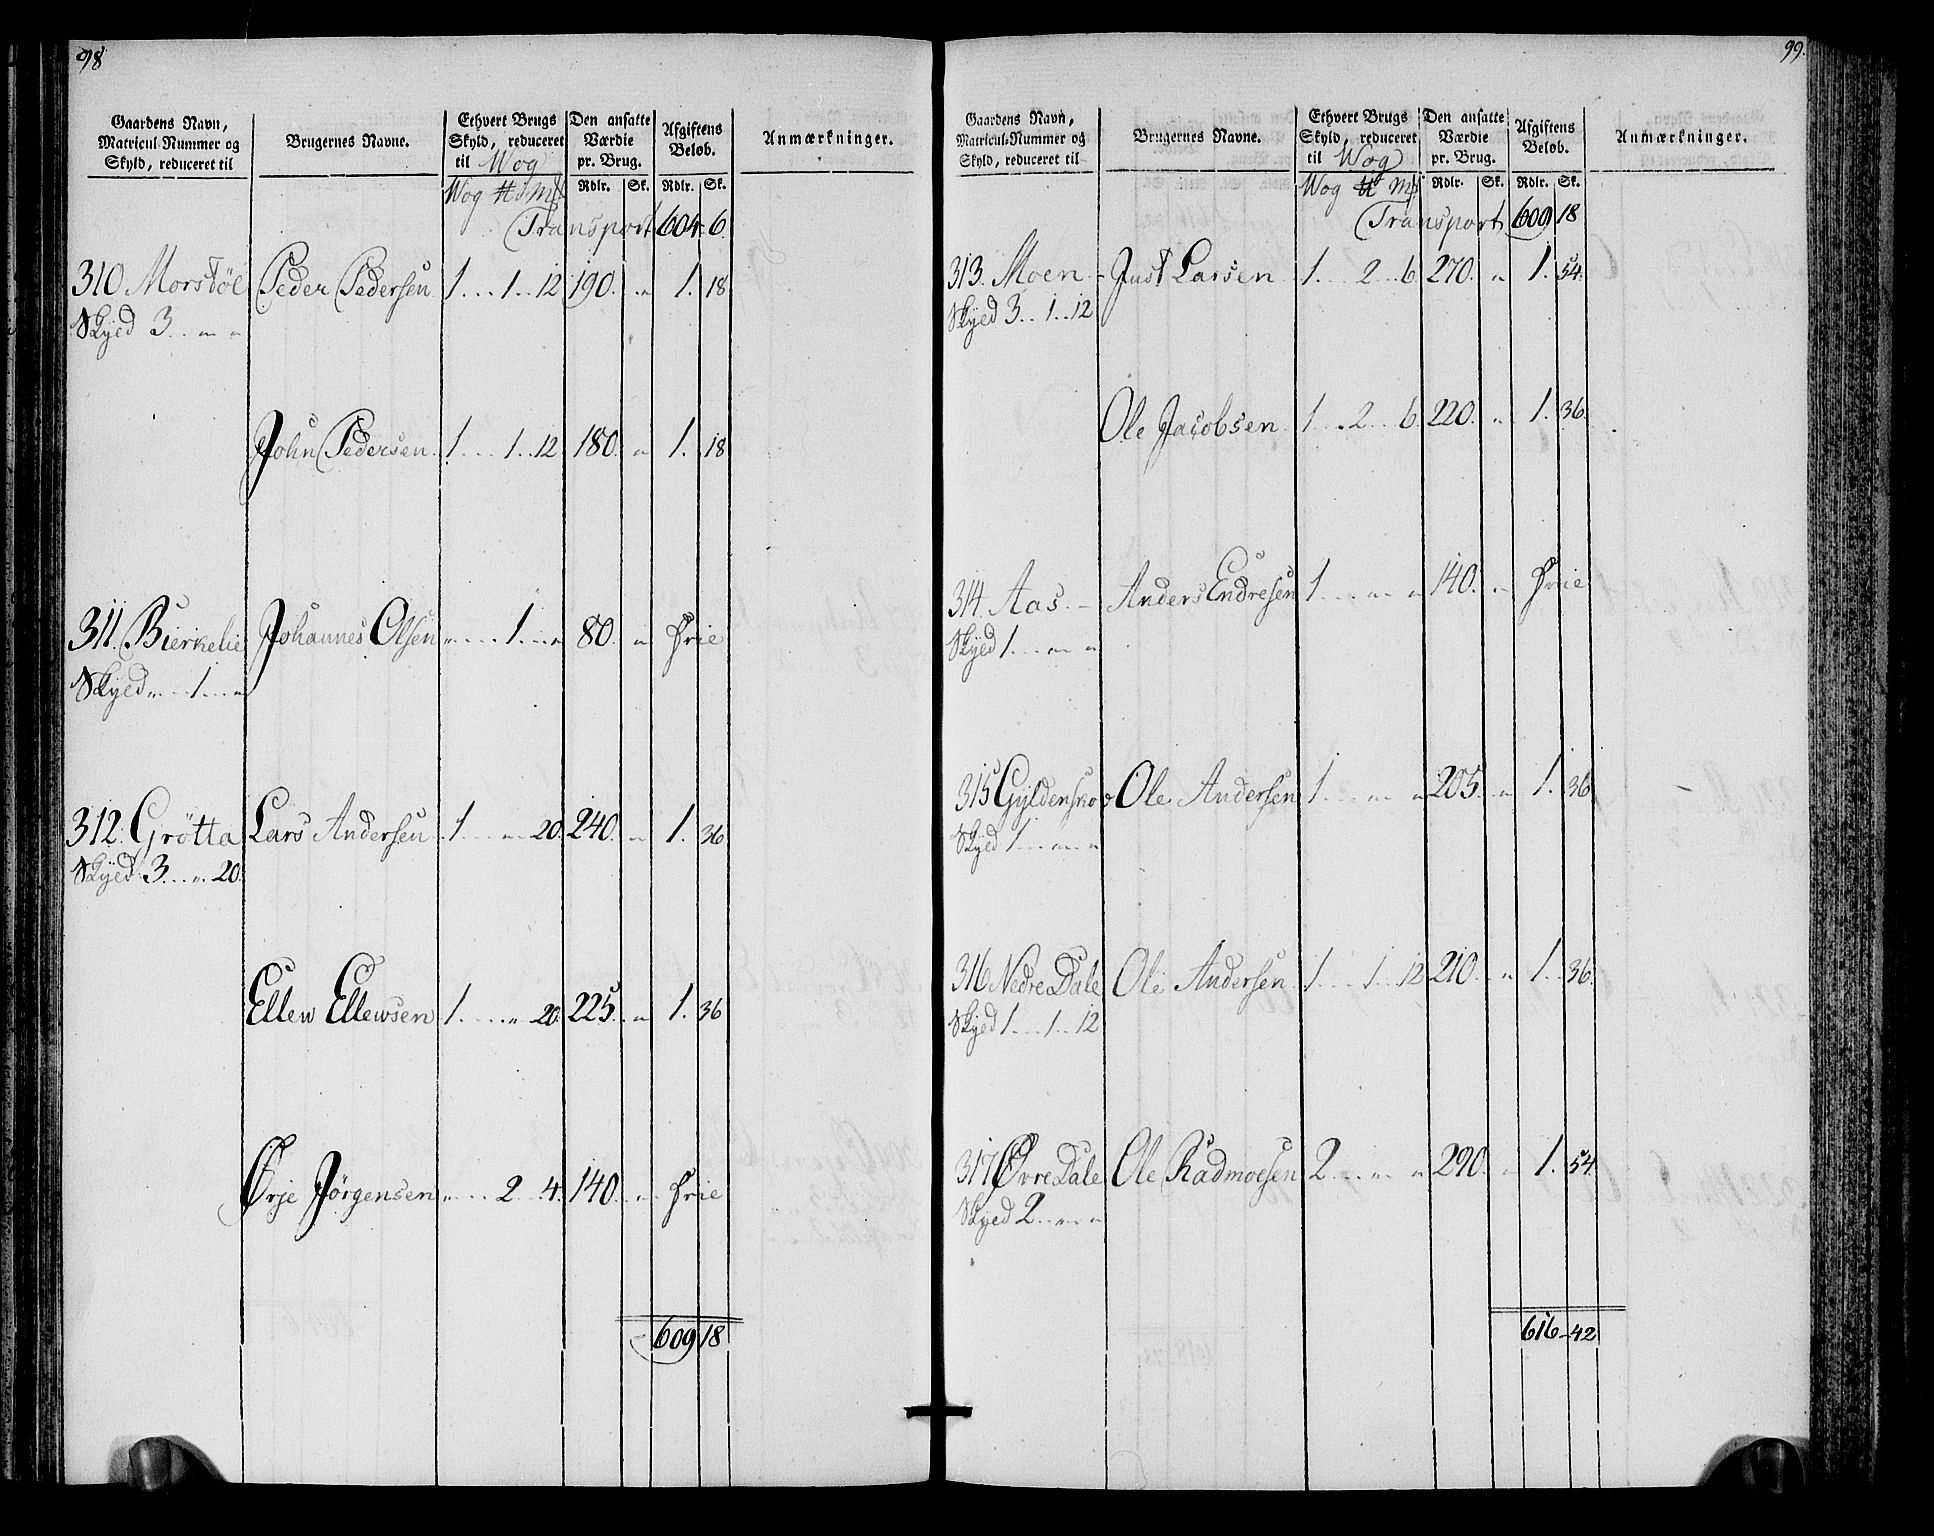 98
Gaardens Navn, Matricul-Nummer og Skyld, reduceret til
Brugernes Navne.
Ethvert Brugs Skyld, reduceret til Wog
Den ansatte Værdie pr. Brug.
Afgiftens Beløb.
Anmærkninger.
Wog ℔ Mf Rdlr. Sk. Rdlr. Sk.
Transport 604 6
310 Morstöl Peder Pedersen 1 1 12 190. „ 1. 18
Skyed 3 „ „
John Pedersen 1 1 12 180. „ 1. 18
311. Bierkelie Johannes Olsen „ 1 „ 80. „ Frie
Skyed „ 1 „
312. Grötta Lars Andersen 1 „ 20. 240. „ 1. 36
Skyed 3 „ 20.
Ellew Ellewsen 1 „ 20 225. „ 1. 36
Ørje Jörgensen „ 2 4 140. „ Frie
609 18
99.
Gaardens Navn, Matricul-Nummer og Skyld, reduceret til
Brugernes Navne.
Ethvert Brugs Skyld, reduceret til Wog
Den ansatte Værdie pr. Brug.
Afgiftens Beløb.
Anmærkninger.
Wog ℔ Mf Rdlr. Sk. Rdlr. Sk.
Transport 609 18
313. Moen - Just Larsen 1 2 6 270. „ 1. 54.
Skyed 3 1 12
Ole Jacobsen 1 2 6 220. „ 1. 36.
314. Aas. - Anders Endresen 1 „ „ 140. „ Frie
Skyed 1 „ „
315 Ole Andersen 1 „ „ 205. „ 1. 36
Skyed 1 „ „
316 Nedre Dale Ole Andersen 1 1 12 210. „ 1. 36
Skyed 1 1 12
317 Øvre Dale Ole Radmoesen 2 „ „ 290. „ 1. 54
Skyed 2 „ „
616 42